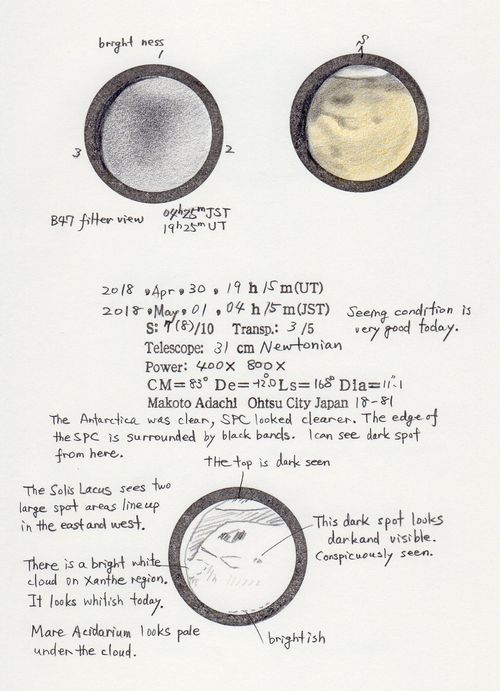 bright ness
1
3
2
S
B47 filter view 04h25m JST
19h25m UT
2018, Apr, 30, 19 h 15 m (UT)
2018, May, 01, 04 h 15 m (JST)
Seeing condition is
very good today.
S: 7(8)/10 Transp.: 3/5
Telescope: 31 cm Newtonian
Power: 400X 800X
CM= 83° De= Ls= 168° Dia= 11".1
Makoto Adachi Ohtsu City Japan 18-81
The Antarctica was clear, SPC looked clearer. The edge of
the SPC is surrounded by black bands. I can see dark spot
from here.
the top is dark seen
The Solis Lacus sees two
large spot areas line up
in the east and west.
This dark spot looks
dark and visible.
Conspicuously seen.
There is a bright white
cloud on Xanthe region.
It looks whitish today.
Mare Acidarium looks pale
under the cloud.
brightish